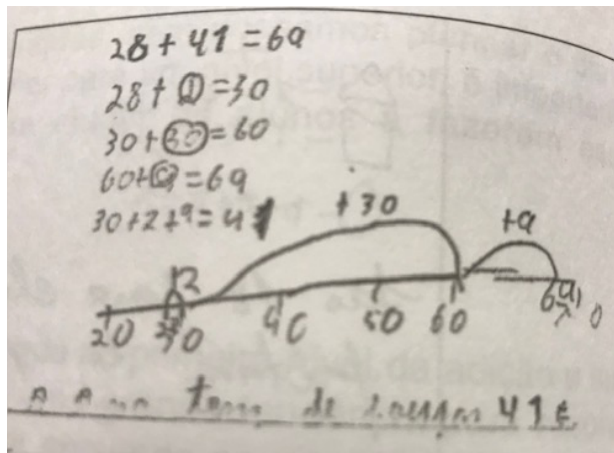 28+41=69
28+②=30
30+㉚=60
60+⑨=69
30+2+9=41
+30 +9
2
20 30 40 50 60 69 70
tem de 41€